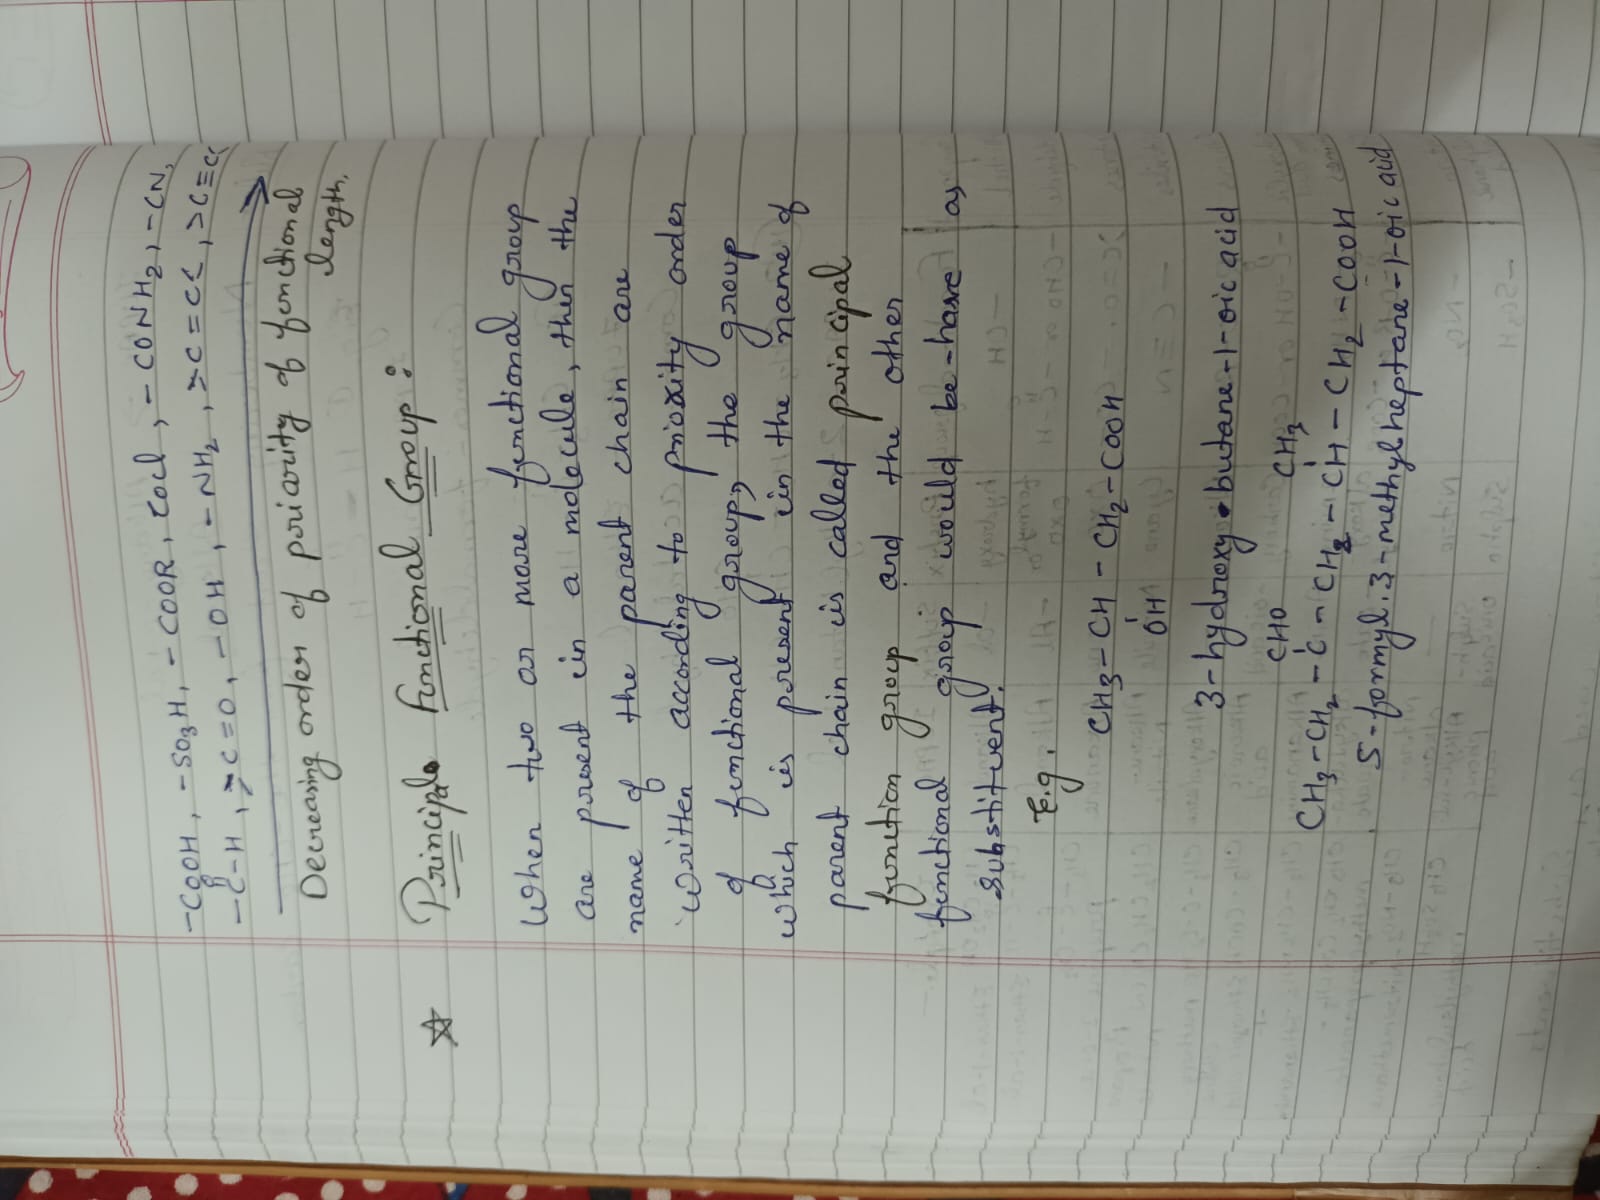 -COOH, -SO3H, -COOR, COCl, -CONH2, -CN,
-C-H, >C=O, -OH, -NH2, >C=C<, >C≡C<
O
Decreasing order of periarity of functional
length.
☆ Principle Functional Group:
When two or more functional group
are present in a molecule, then the
name of the parent chain are
written according to priority order
of functional group, the group
which is present in the name of
parent chain is called principal
function group and the other
functional group would be-have as
substituent.
E.g.
CH3-CH-CH2-COOH
OH
3-hydroxy butane-1-oic acid
CHO CH3
CH3-CH2-C-CH2-CH-CH2-COOH
5-formyl, 3-methylheptane-1-oic acid